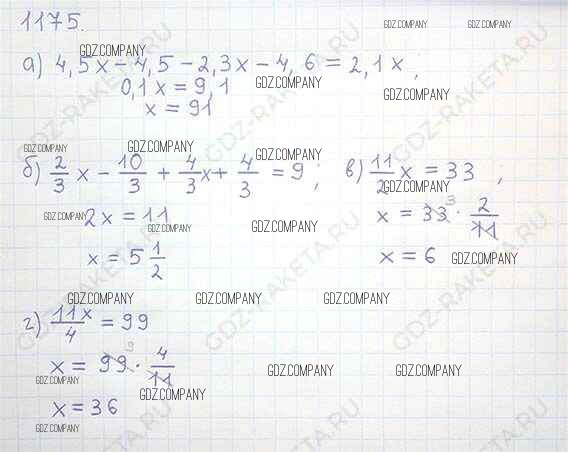 1175.
GDZ.COMPANY GDZ.COMPANY GDZ.COMPANY
а) 4,5x - 4,5 - 2,3x - 4,6 = 2,1x ;
0,1x = 9,1 GDZ.COMPANY
x = 91 GDZ.COMPANY
GDZ.COMPANY GDZ.COMPANY GDZ.COMPANY
б) 2/3 x - 10/3 + 4/3 x + 4/3 = 9 ; в) 11/2 x = 33 ,
GDZ.COMPANY
GDZ.COMPANY 2x = 11 GDZ.COMPANY GDZ.COMPANY x = 33 3 · 2/11
x = 5 1/2 x = 6 GDZ.COMPANY
GDZ.COMPANY GDZ.COMPANY GDZ.COMPANY
г) 11x/4 = 99
x = 99 9 · 4/11 GDZ.COMPANY GDZ.COMPANY
GDZ.COMPANY GDZ.COMPANY
x = 36
GDZ.COMPANY
GDZ-RAKETA.RU GDZ-RAKETA.RU GDZ-RAKETA.RU GDZ-RAKETA.RU